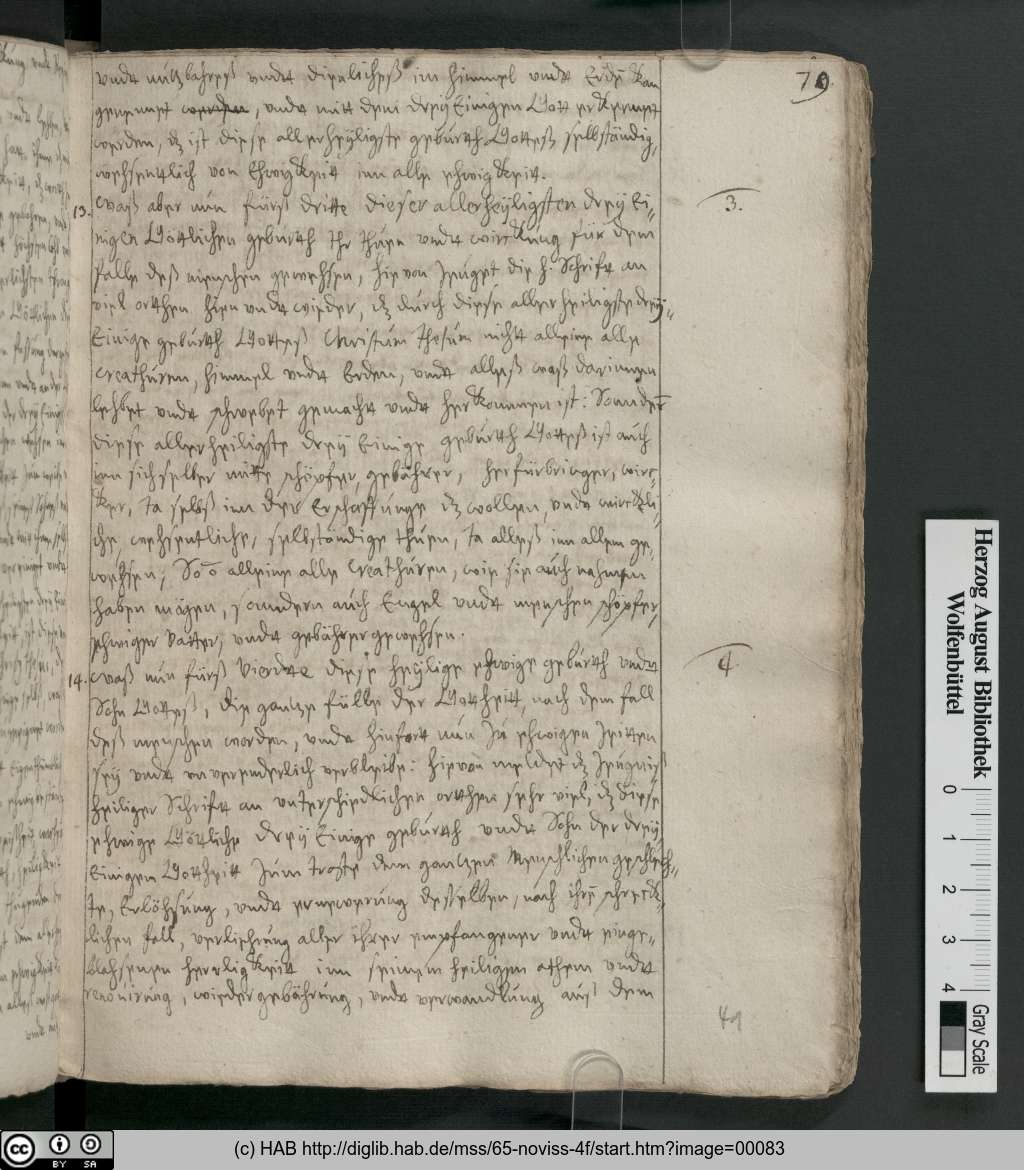 79
undt nützbahreß undt dienliches im himmel undt Erdē kan
genennet werden, undt mitt dem dreÿ Einigen Gott erkennet
werden, dz ist diese allerheÿligste gebürth Gotteß selbständig,
wehsentlich von Ehwigkeitt inn alle ehwigkeit.
13. Waß aber nun fürß dritte dieser allerheÿligsten dreÿ Ei„
3.
nigen Göttlichen gebürth Ihr thüen undt wirckung für dem
Falle deß menschen gewehsen, hie von Zeuget die h. Schrift an
viel orthen hien undt wieder, dz dürch diese allerheiligste dreÿ„
Einige gebürth Gotteß Christum Ihesum nicht alleine alle
Creathüren, himmel undt Erden, undt alleß waß darinnen
lehbet undt schwebet gemacht undt herkommen ist: Sondern
diese allerheiligste dreÿ Einige gebürth Gotteß ist auch
inn sich selber mitte schöpfer, gebährer, herfürbringer, wirc„
ker, Ja selbß inn der Erschaffunge dz wollen, undt wirckli„
che, wehsentliche, selbständige thüen, Ja alleß inn allem ge„
wehsen, alleine alle Creathüren, wie sie auch nahmen
haben mögen, sondern auch Engel undt menschen schöpfer,
ehwiger Vatter, undt gebährer gewehsen.
14. Waß nun fürß Vierdte diese heÿlige ehwige gebürth undt
4.
Sohn Gotteß, die gantze fülle der Gottheitt, nach dem fall
deß menschen worden, undt hinfort nun Zu ehwigen Zeitten
seÿ undt unverenderlich verbleibe: hiervon meldet dz Zeugniß
heiliger Schrifft an unterschiedlichen orthen sehr viel, dz diese
ehwige Göttliche dreÿ Einige gebürth undt Sohn der dreÿ
Einigen Gottheitt Zum troste dem gantzen Menschlichen geschlech„
te, Erlöhsung, undt ernewerung desselben, nach ihrē schreck„
lichen fall, verliehrung aller ihrer empfangener undt einge„
blahsenen herrligkeitt inn seinem heiligen athem undt
renovirung, wiedergebährung, undt verwandlung auß dem
Herzog August Bibliothek
Wolfenbüttel
0 1 2 3 4
Gray Scale
cc BY SA
(c) HAB http://diglib.hab.de/mss/65-noviss-4f/start.htm?image=00083